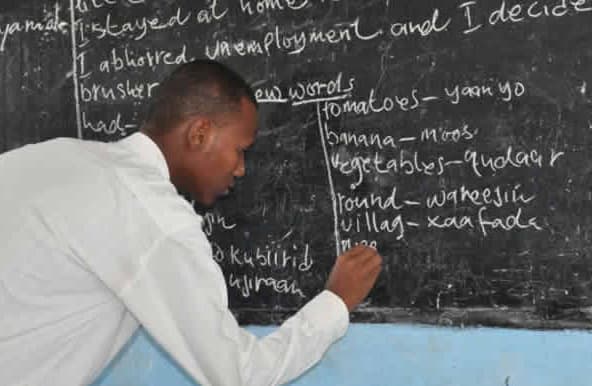 I stayed at home
I abhorred unemployment and I decide
new words
tomatoes – yaanyo
banana – moos
vegetables – qudaar
round – wareejin
villag – xaafada
kubiirid
ujiraan